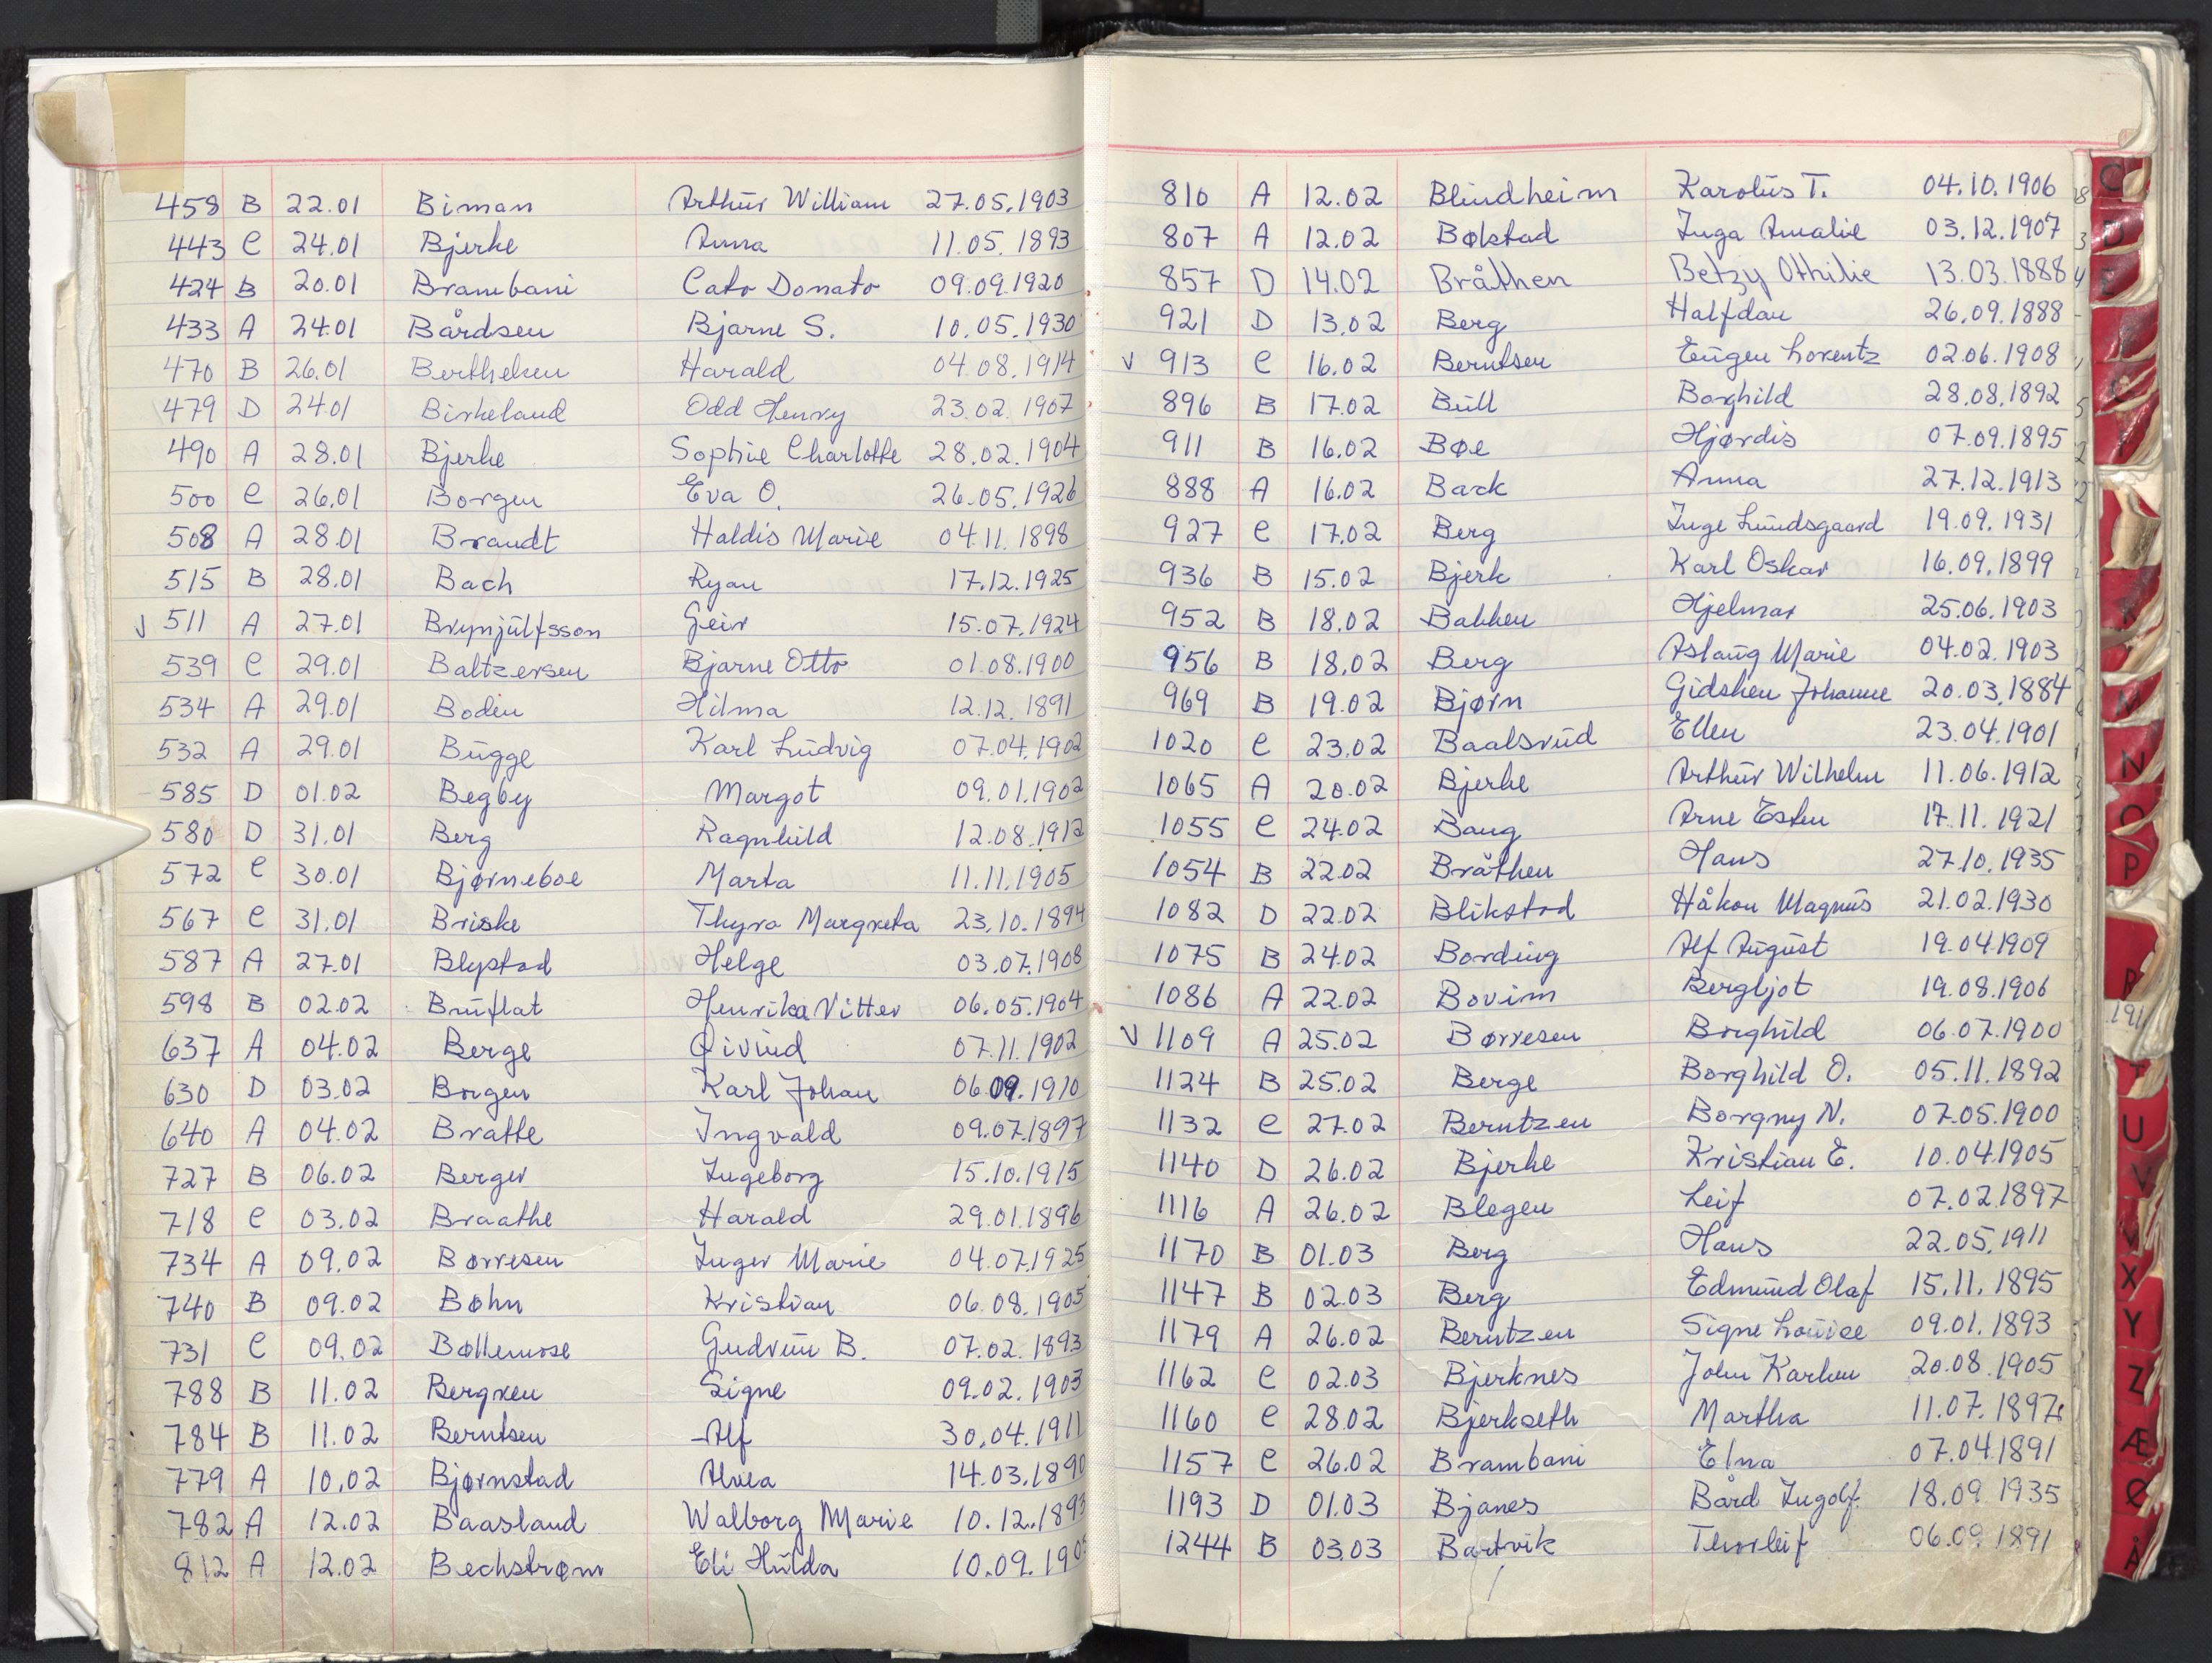 458 B 22.01 Biman Arthur William 27.05.1903
443 C 24.01 Bjerke Anna 11.05.1893
424 B 20.01 Brambani Cato Donato 09.09.1920
433 A 24.01 Bårdsen Bjarne S. 10.05.1930
470 B 26.01 Berthelsen Harald 04.08.1914
479 D 24.01 Birkeland Odd Henry 23.02.1907
490 A 28.01 Bjerke Sophie Charlotte 28.02.1904
500 C 26.01 Borgen Eva O. 26.05.1926
508 A 28.01 Brandt Haldis Marie 04.11.1898
515 B 28.01 Bach Ryan 17.12.1925
√ 511 A 27.01 Brynjulfsson Geir 15.07.1924
539 C 29.01 Baltzersen Bjarne Otto 01.08.1900
534 A 29.01 Bodin Hilma 12.12.1891
532 A 29.01 Bugge Karl Ludvig 07.04.1902
585 D 01.02 Begby Margot 09.01.1902
580 D 31.01 Berg Ragnhild 12.08.1912
572 C 30.01 Bjørneboe Marta 11.11.1905
567 C 31.01 Briske Thyra Margreta 23.10.1894
587 A 27.01 Blystad Helge 03.07.1908
598 B 02.02 Bruflat Henrika Vitter 06.05.1904
637 A 04.02 Berge Øivind 07.11.1902
630 D 03.02 Borgen Karl Johan 06.09.1910
640 A 04.02 Bratte Ingvald 09.07.1897
727 B 06.02 Berger Ingeborg 15.10.1915
718 C 03.02 Braathe Harald 29.01.1896
734 A 09.02 Børresen Inger Marie 04.07.1925
740 B 09.02 Bøhn Kristian 06.08.1905
731 C 09.02 Bøllemose Gudrun B. 07.02.1893
788 B 11.02 Bergren Signe 09.02.1903
784 B 11.02 Berntsen Alf 30.04.1911
779 A 10.02 Bjørnstad Alvea 14.03.1890
782 A 12.02 Baasland Walborg Marie 10.12.1893
812 A 12.02 Bechstrøm Eli Hulda 10.09.190
810 A 12.02 Blindheim Karolus T. 04.10.1906
807 A 12.02 Bølstad Inga Amalie 03.12.1907
857 D 14.02 Bråthen Betzy Othilie 13.03.1888
921 D 13.02 Berg Halfdan 26.09.1888
√ 913 C 16.02 Berntsen Eugen Lorentz 02.06.1908
896 B 17.02 Bull Borghild 28.08.1892
911 B 16.02 Bøe Hjørdis 07.09.1895
888 A 16.02 Back Anna 27.12.1913
927 C 17.02 Berg Inge Lundsgaard 19.09.1931
936 B 15.02 Bjerk Karl Oskar 16.09.1899
952 B 18.02 Bakken Hjelmar 25.06.1903
956 B 18.02 Berg Aslaug Marie 04.02.1903
969 B 19.02 Bjørn Gidsken Johanne 20.03.1884
1020 C 23.02 Baalsrud Ellen 23.04.1901
1065 A 20.02 Bjerke Arthur Wilhelm 11.06.1912
1055 C 24.02 Baug Arne Esten 17.11.1921
1054 B 22.02 Bråthen Hans 27.10.1935
1082 D 22.02 Blikstad Håkon Magnus 21.02.1930
1075 B 24.02 Bording Alf August 19.04.1909
1086 A 22.02 Bovim Bergljot 19.08.1906
√ 1109 A 25.02 Børresen Borghild 06.07.1900
1124 B 25.02 Berge Borghild O. 05.11.1892
1132 C 27.02 Berntzen Borgny N. 07.05.1900
1140 D 26.02 Bjerke Kristian E. 10.04.1905
1116 A 26.02 Blegen Leif 07.02.1897
1170 B 01.03 Berg Hans 22.05.1911
1147 B 02.03 Berg Edmund Olaf 15.11.1895
1179 A 26.02 Berntzen Signe Louise 09.01.1893
1162 C 02.03 Bjerknes John Karlen 20.08.1905
1160 C 28.02 Bjerkseth Martha 11.07.1897
1157 C 26.02 Brambani Elna 07.04.1891
1193 D 01.03 Bjanes Bård Ingolf 18.09.1935
1244 B 03.03 Bartvik Thorleif 06.09.1891
C
D
N
O
P
R
U
V
X
Y
Z
Æ
Ø
Å